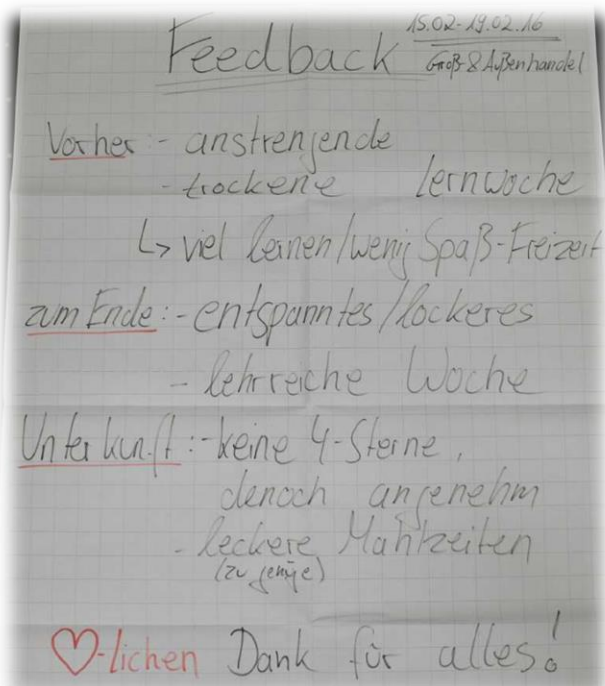 15.02-19.02.16
Feedback Groß & Außenhandel
Vorher:- anstrengende
- trockene Lernwoche
↳ viel lernen/wenig Spaß-Freizeit
zum Ende:- entspanntes/lockeres
- lehrreiche Woche
Unterkunft:- keine 4-Sterne,
denoch angenehm
- leckere Mahlzeiten
(zu genüge)
♡-lichen Dank für alles!